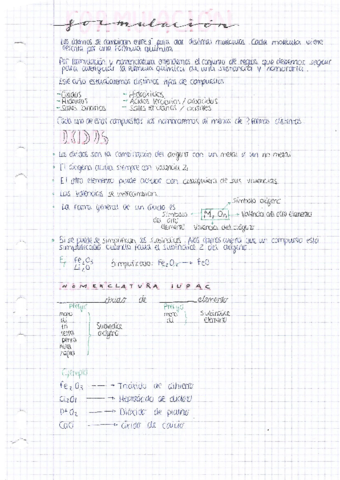 formulación
Los átomos se combinan entre sí para dar distintas moléculas. Cada molécula viene
escrita por una fórmula química.
Por formulación y nomenclatura entendemos el conjunto de reglas que debemos seguir
para averiguar la fórmula química de una sustancia y nombrarla.
Este año estudiaremos distintos tipos de compuestos
- Óxidos
- Hidróxidos
- Hidruros
- Ácidos ternarios / oxácidos
- Sales binarias
- Sales ternarias /
Cada uno de estos compuestos los nombraremos al menos de 2 formas distintas
ÓXIDOS
• Los óxidos son la combinación del oxígeno con un metal o un no metal
• El oxígeno actúa siempre con valencia 2.
• El otro elemento puede actuar con cualquiera de sus valencias.
• Las valencias se intercambian.
• La forma general de un óxido es
símbolo oxígeno
símbolo
del otro
elemento
M₂Oₙ
valencia del otro elemento
valencia del oxígeno
• Si se puede se simplifican los subíndices. Nos damos cuenta que un compuesto está
simplificado cuando falta el subíndice 2 del oxígeno.
Simplificado: Fe₂O₂ → FeO
NOMENCLATURA IUPAC
óxido de elemento
Prefijo
mono
di
tri
tetra
penta
hexa
hepta
Subíndice
oxígeno
Prefijo
mono
di
Subíndice
elemento
Ejemplo
Cl₂O₇ → Heptaóxido de dicloro
PtO₂ → Dióxido de platino
CaO → Óxido de calcio